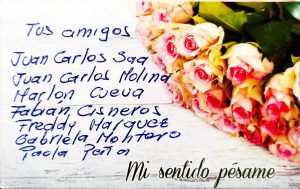 Tus amigos
Juan Carlos Saa
Juan Carlos Molina
Marlón Cueva
Fabián Cisneros
Freddy Márquez
Gabriela Molitero
Paola Peña
Mi sentido pésame